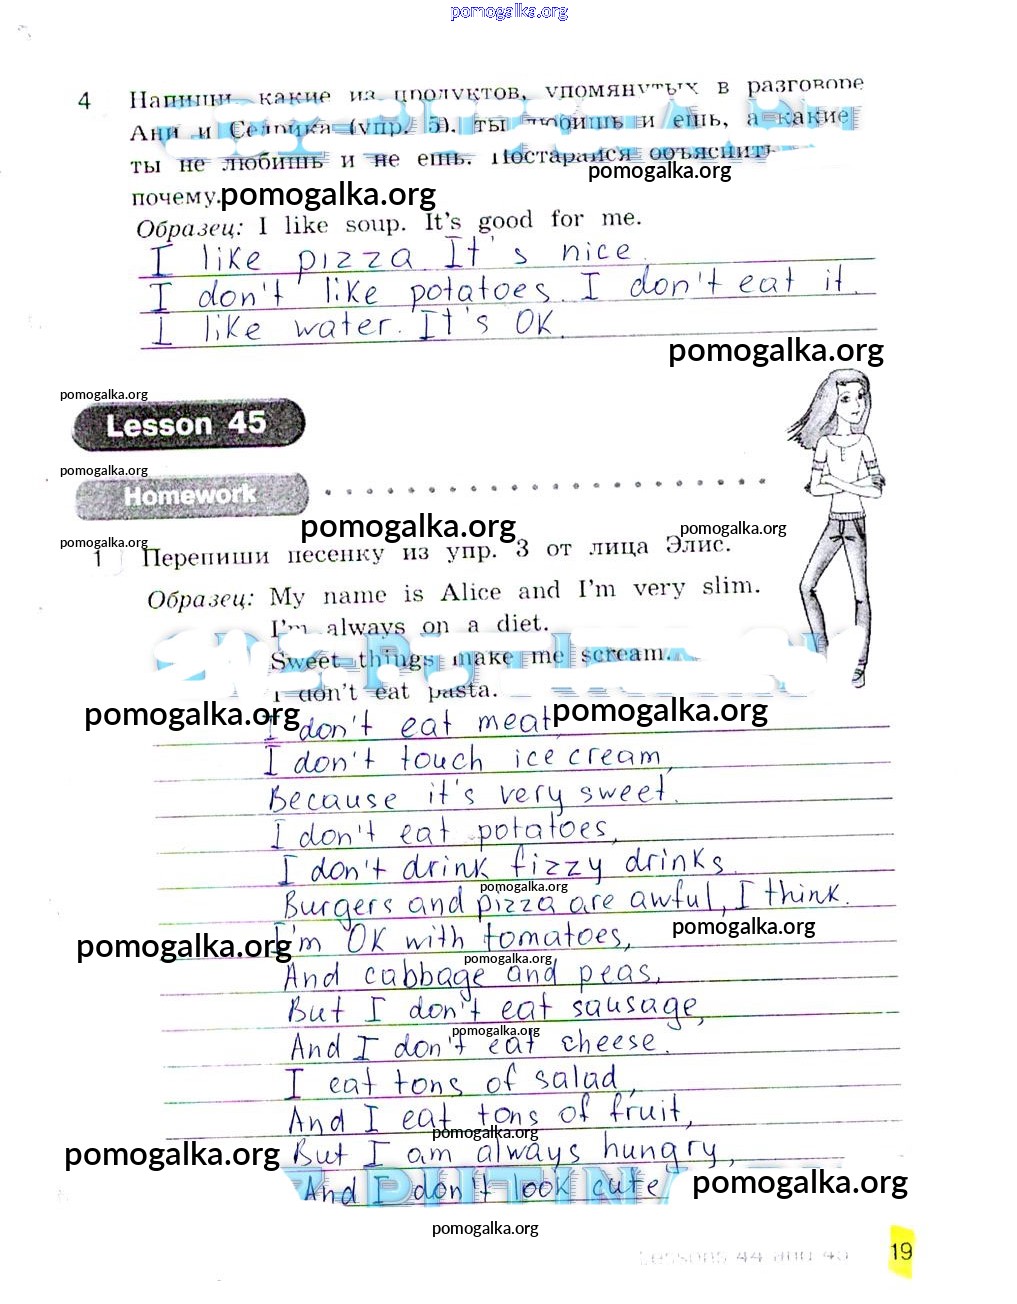 pomogalka.org
4 Напиши, какие из продуктов, упомянутых в разговоре
Ани и Седрика (упр. 5), ты любишь и ешь, а какие
ты не любишь и не ешь. Постарайся объяснить
pomogalka.org
почему.
pomogalka.org
Образец: I like soup. It's good for me.
I like pizza. It's nice.
I don't like potatoes. I don't eat it.
I like water. It's OK.
pomogalka.org
pomogalka.org
Lesson 45
pomogalka.org
Homework
pomogalka.org
pomogalka.org
pomogalka.org
1 Перепиши песенку из упр. 3 от лица Элис.
Образец: My name is Alice and I'm very slim.
I'm always on a diet.
Sweet things make me scream.
I don't eat pasta.
pomogalka.org
pomogalka.org
I don't eat meat,
I don't touch ice cream,
Because it's very sweet.
I don't eat potatoes,
I don't drink fizzy drinks.
pomogalka.org
Burgers and pizza are awful, I think.
pomogalka.org
pomogalka.org
I'm OK with tomatoes,
pomogalka.org
And cabbage and peas,
But I don't eat sausage,
pomogalka.org
And I don't eat cheese.
I eat tons of salad,
And I eat tons of fruit,
pomogalka.org
pomogalka.org
But I am always hungry,
And I don't look cute
pomogalka.org
pomogalka.org
Lessons 44 and 45
19